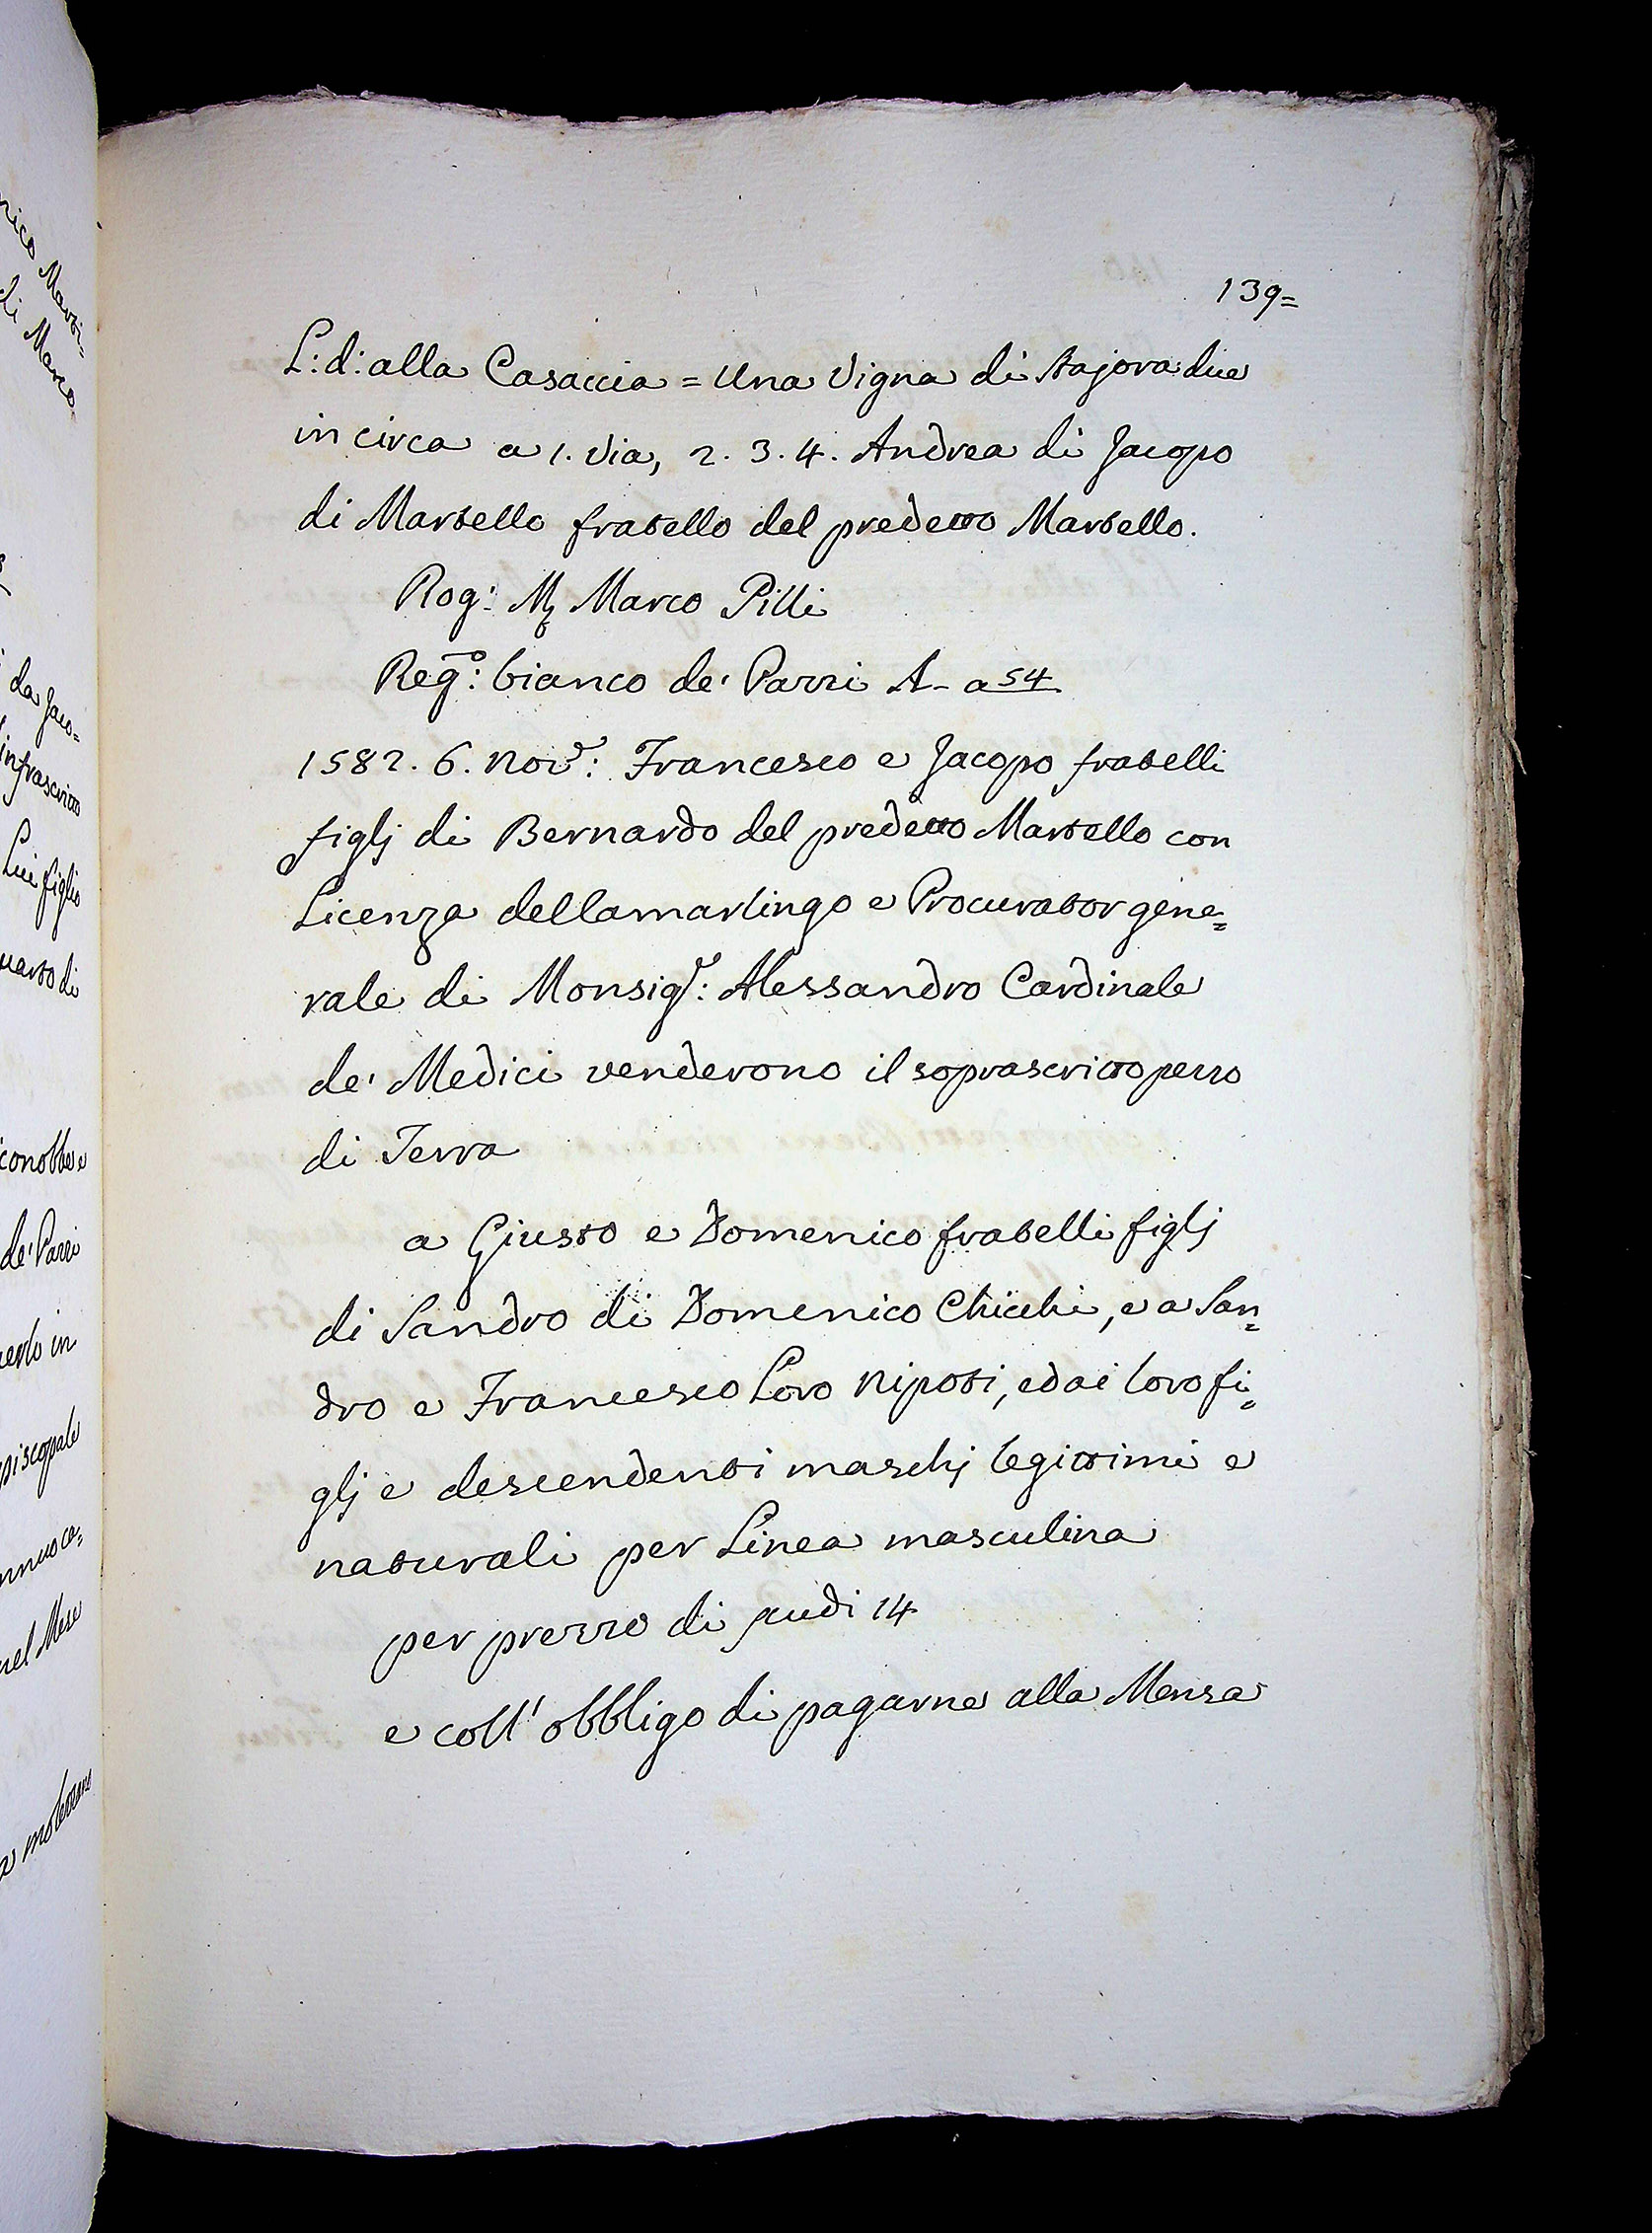 139=
L: d: alla Casaccia = Una Vigna di Stajora due
in circa a 1. Via, 2. 3. 4. Andrea di Jacopo
di Martello fratello del predetto Martello.
Rog: Marco Pilli
Reg.o: bianco de' Pazzi A- a 54
1582. 6. Nov.e: Francesco e Jacopo fratelli
figlj di Bernardo del predetto Martello con
Licenza dellamarlingo e Procurator gene=
rale di Monsig.e: Alessandro Cardinale
de' Medici venderono il soprascritto pezzo
di Terra
a Giusto e Domenico fratelli figlj
di Sandro di Domenico Chicchi, e a San=
dro e Francesco Loro Nipoti, ed ai loro fi=
glj e descendenti maschj legittimi e
naturali per Linea masculina
per prezzo di scudi 14
e coll' obbligo di pagarne alla Mensa
da Jaco=
infrascritto
Lui figlio
de' Pazzi
nel Mese